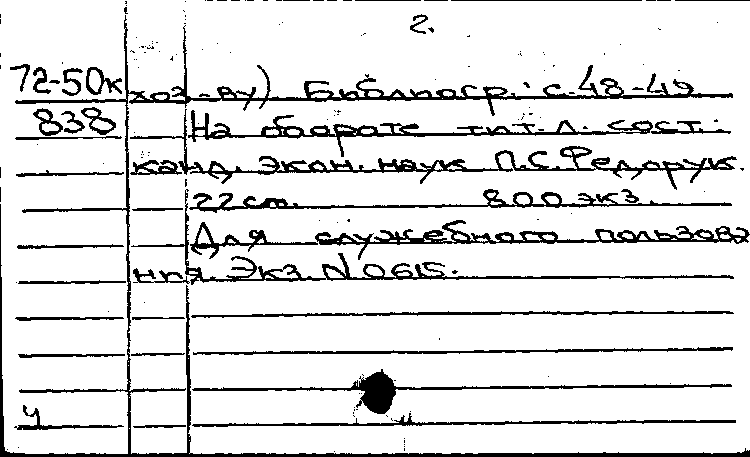 2.
72-50к хоз-ву) Библиогр.: с.48-49.
838 На обороте тит. л. сост.:
канд. экон. наук П.С. Федорук.
22 см. 800 экз.
Для служебного пользова
ния. Экз. N 0615.
ч